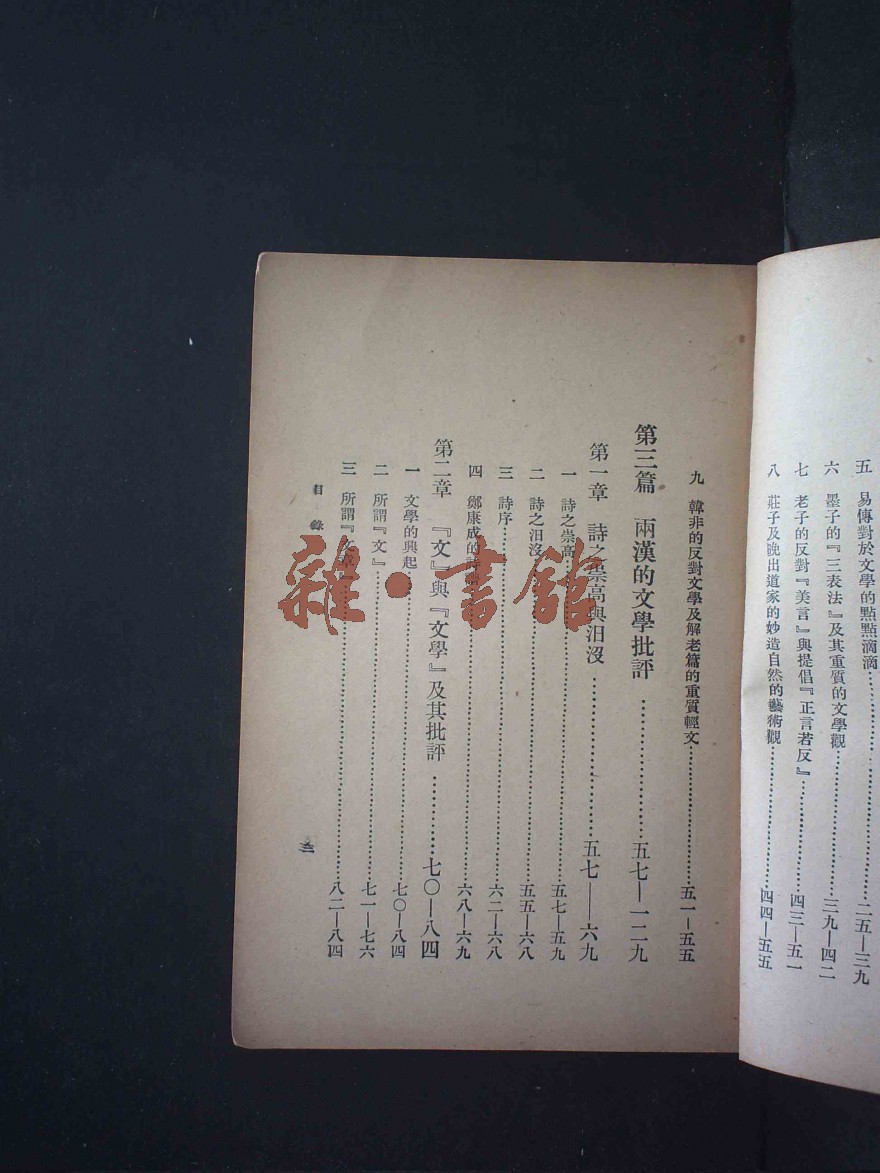 五　易傳對於文學的點點滴滴……二五—三九
六　墨子的『三表法』及其重質的文學觀……三九—四二
七　老子的反對『美言』與提倡『正言若反』……四三—五一
八　莊子及晚出道家的妙造自然的藝術觀……四四—五五
九　韓非的反對文學及解老篇的重質輕文……五一—五五
第三篇　兩漢的文學批評……五七—一二九
第一章　詩之崇高與汨沒……五七—六九
一　詩之崇高……五七—五九
二　詩之汨沒……五五—六八
三　詩序……六二—六八
四　鄭康成的詩……六八—六九
第二章　『文』與『文學』及其批評……七〇—八四
一　文學的興起……七〇—八四
二　所謂『文』……七一—七六
三　所謂『文章』……八二—八四
目錄
三
雜·書館